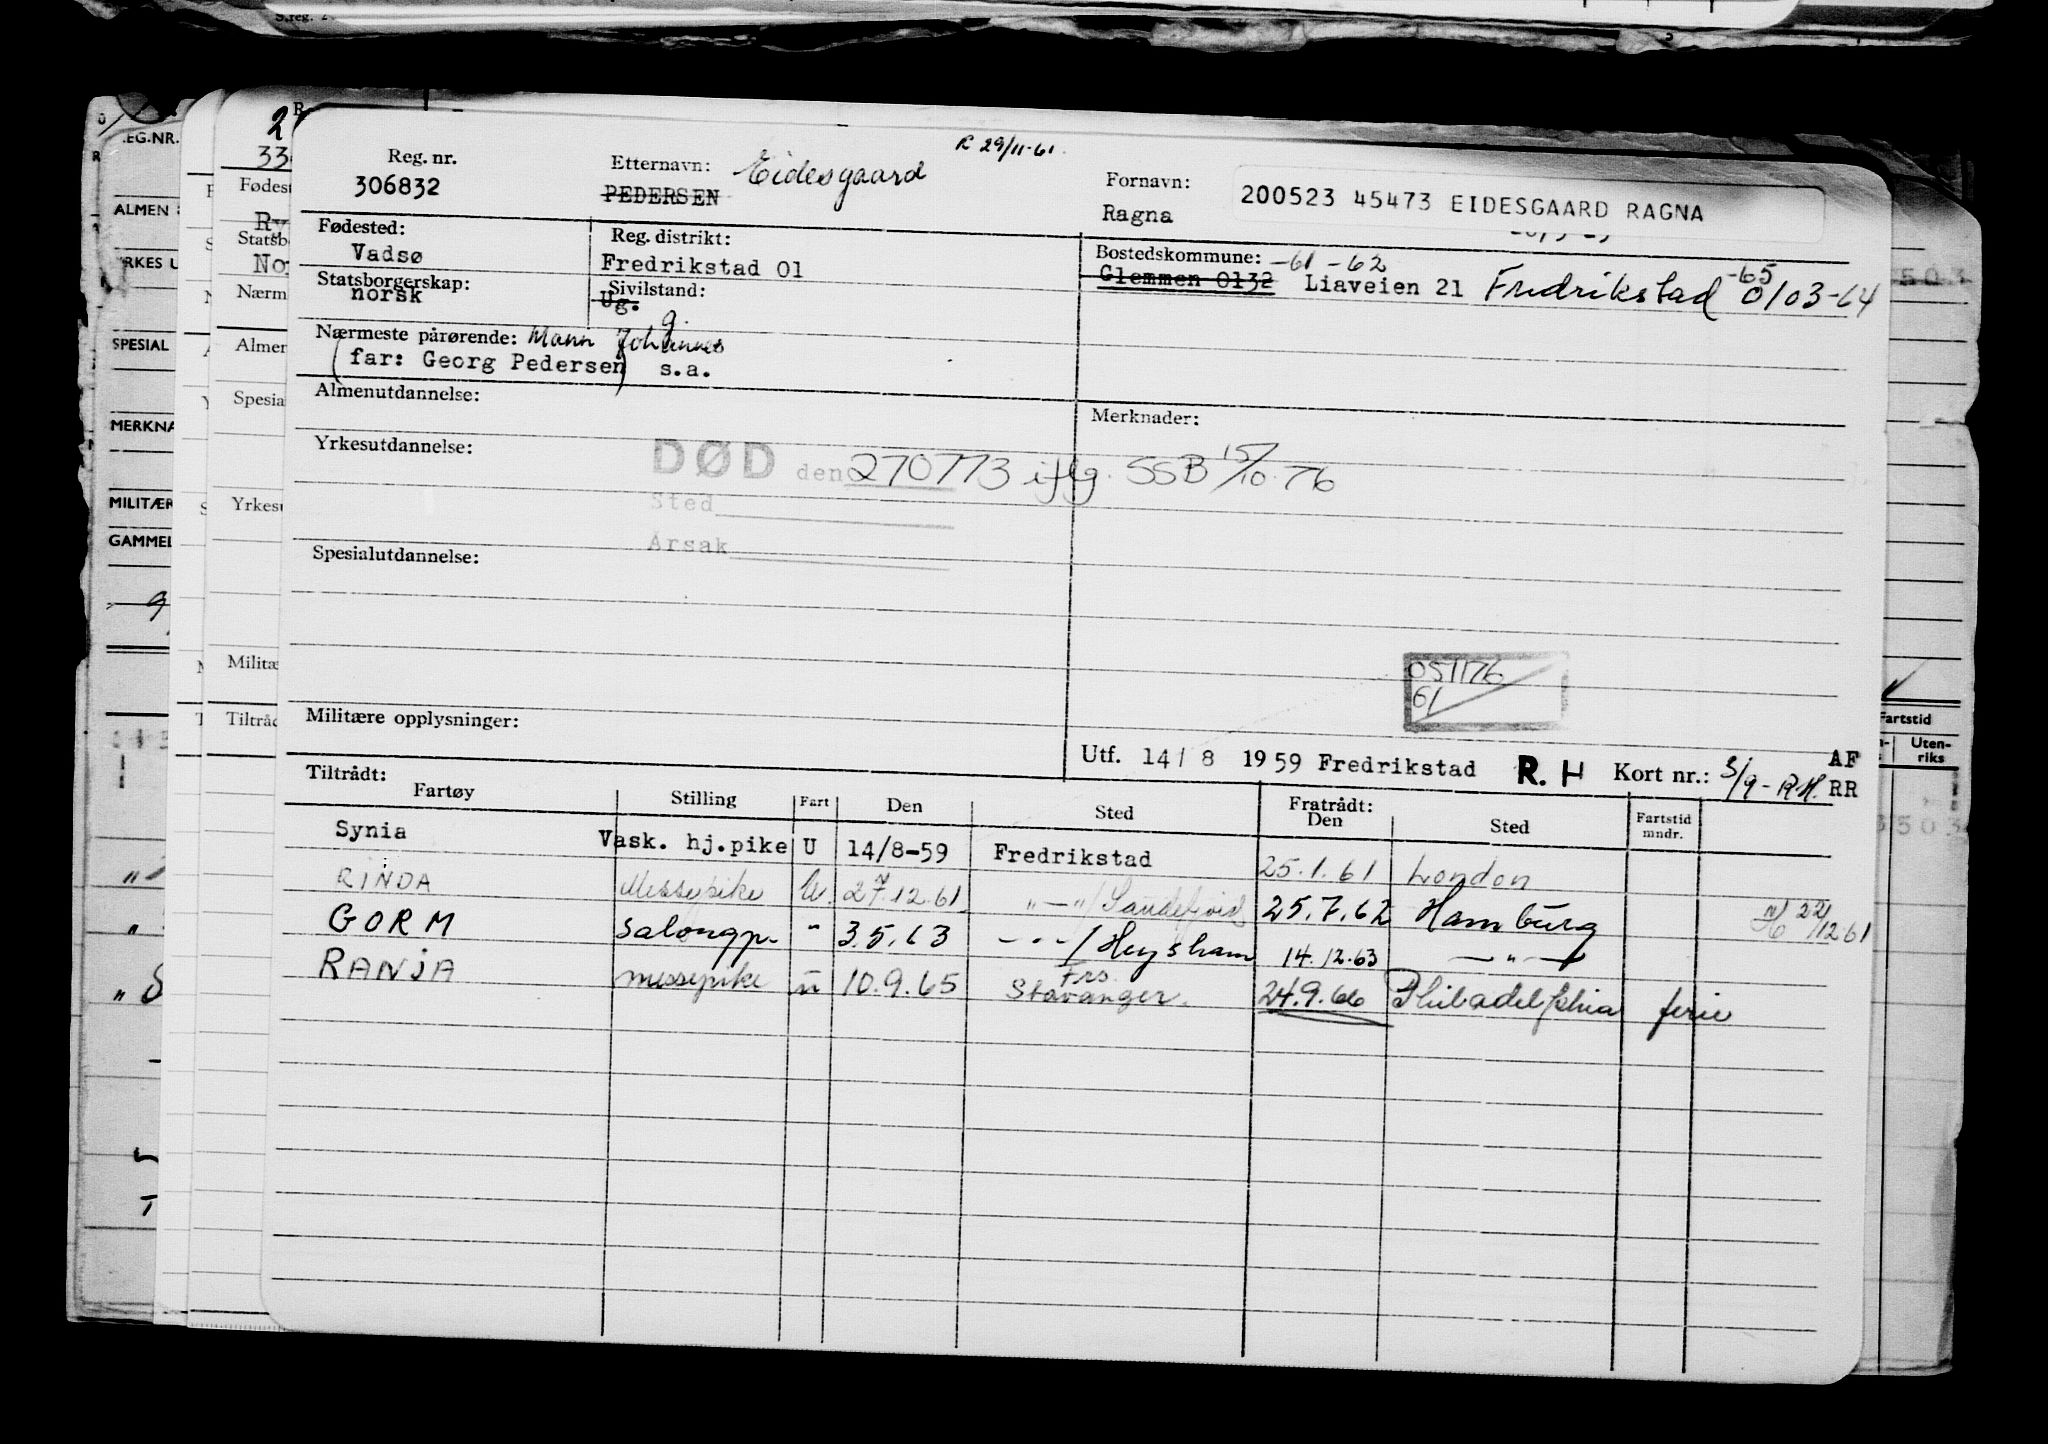 S.reg. 2
R 29/11-61.
Reg. nr.
306832
Etternavn: Eidesgaard
PEDERSEN
Fornavn:
Ragna
200523 45473 EIDESGAARD RAGNA
Fødested:
Vadsø
Reg. distrikt:
Fredrikstad 01
Bostedskommune: -61 -62 -65
Glemmen 0132 Liaveien 21 Fredrikstad 0103-64
Statsborgerskap:
norsk
Sivilstand:
Ug.
g.
Nærmeste pårørende: Mann Johannes
(far: Georg Pedersen) s.a.
Almenutdannelse:
Merknader:
Yrkesutdannelse:
DØD den 270773 iflg. SSB 15/10.76
Sted
Årsak
Spesialutdannelse:
051176
61
Militære opplysninger:
Utf. 14/8 1959 Fredrikstad R.H Kort nr.: 3/9-R.H. AF RR
Tiltrådt:
Fartøy Stilling Fart Den Sted Fratrådt: Den Sted Fartstid mndr.
Synia Vask. hj.pike U 14/8-59 Fredrikstad 25.1.61 London
RINDA Messepike U. 27.12.61 "—"/Sandefjord 25.7.62 Hamburg 22/12 61
GORM Salongp. " 3.5.63 -"-/Heysham 14.12.63 —"—
RANJA messepike u 10.9.65 Frs. Stavanger. 24.9.66 Philadelphia ferie
EG.NR.
ALMEN
RKES U
SPESIAL
MERKNA
MILITÆR
GAMMEL
33
Fødest
Statsb
No
Nærm
Almen
Spesia
Yrkesu
Militæ
Tiltråd
Fartstid
Uten-
riks
503